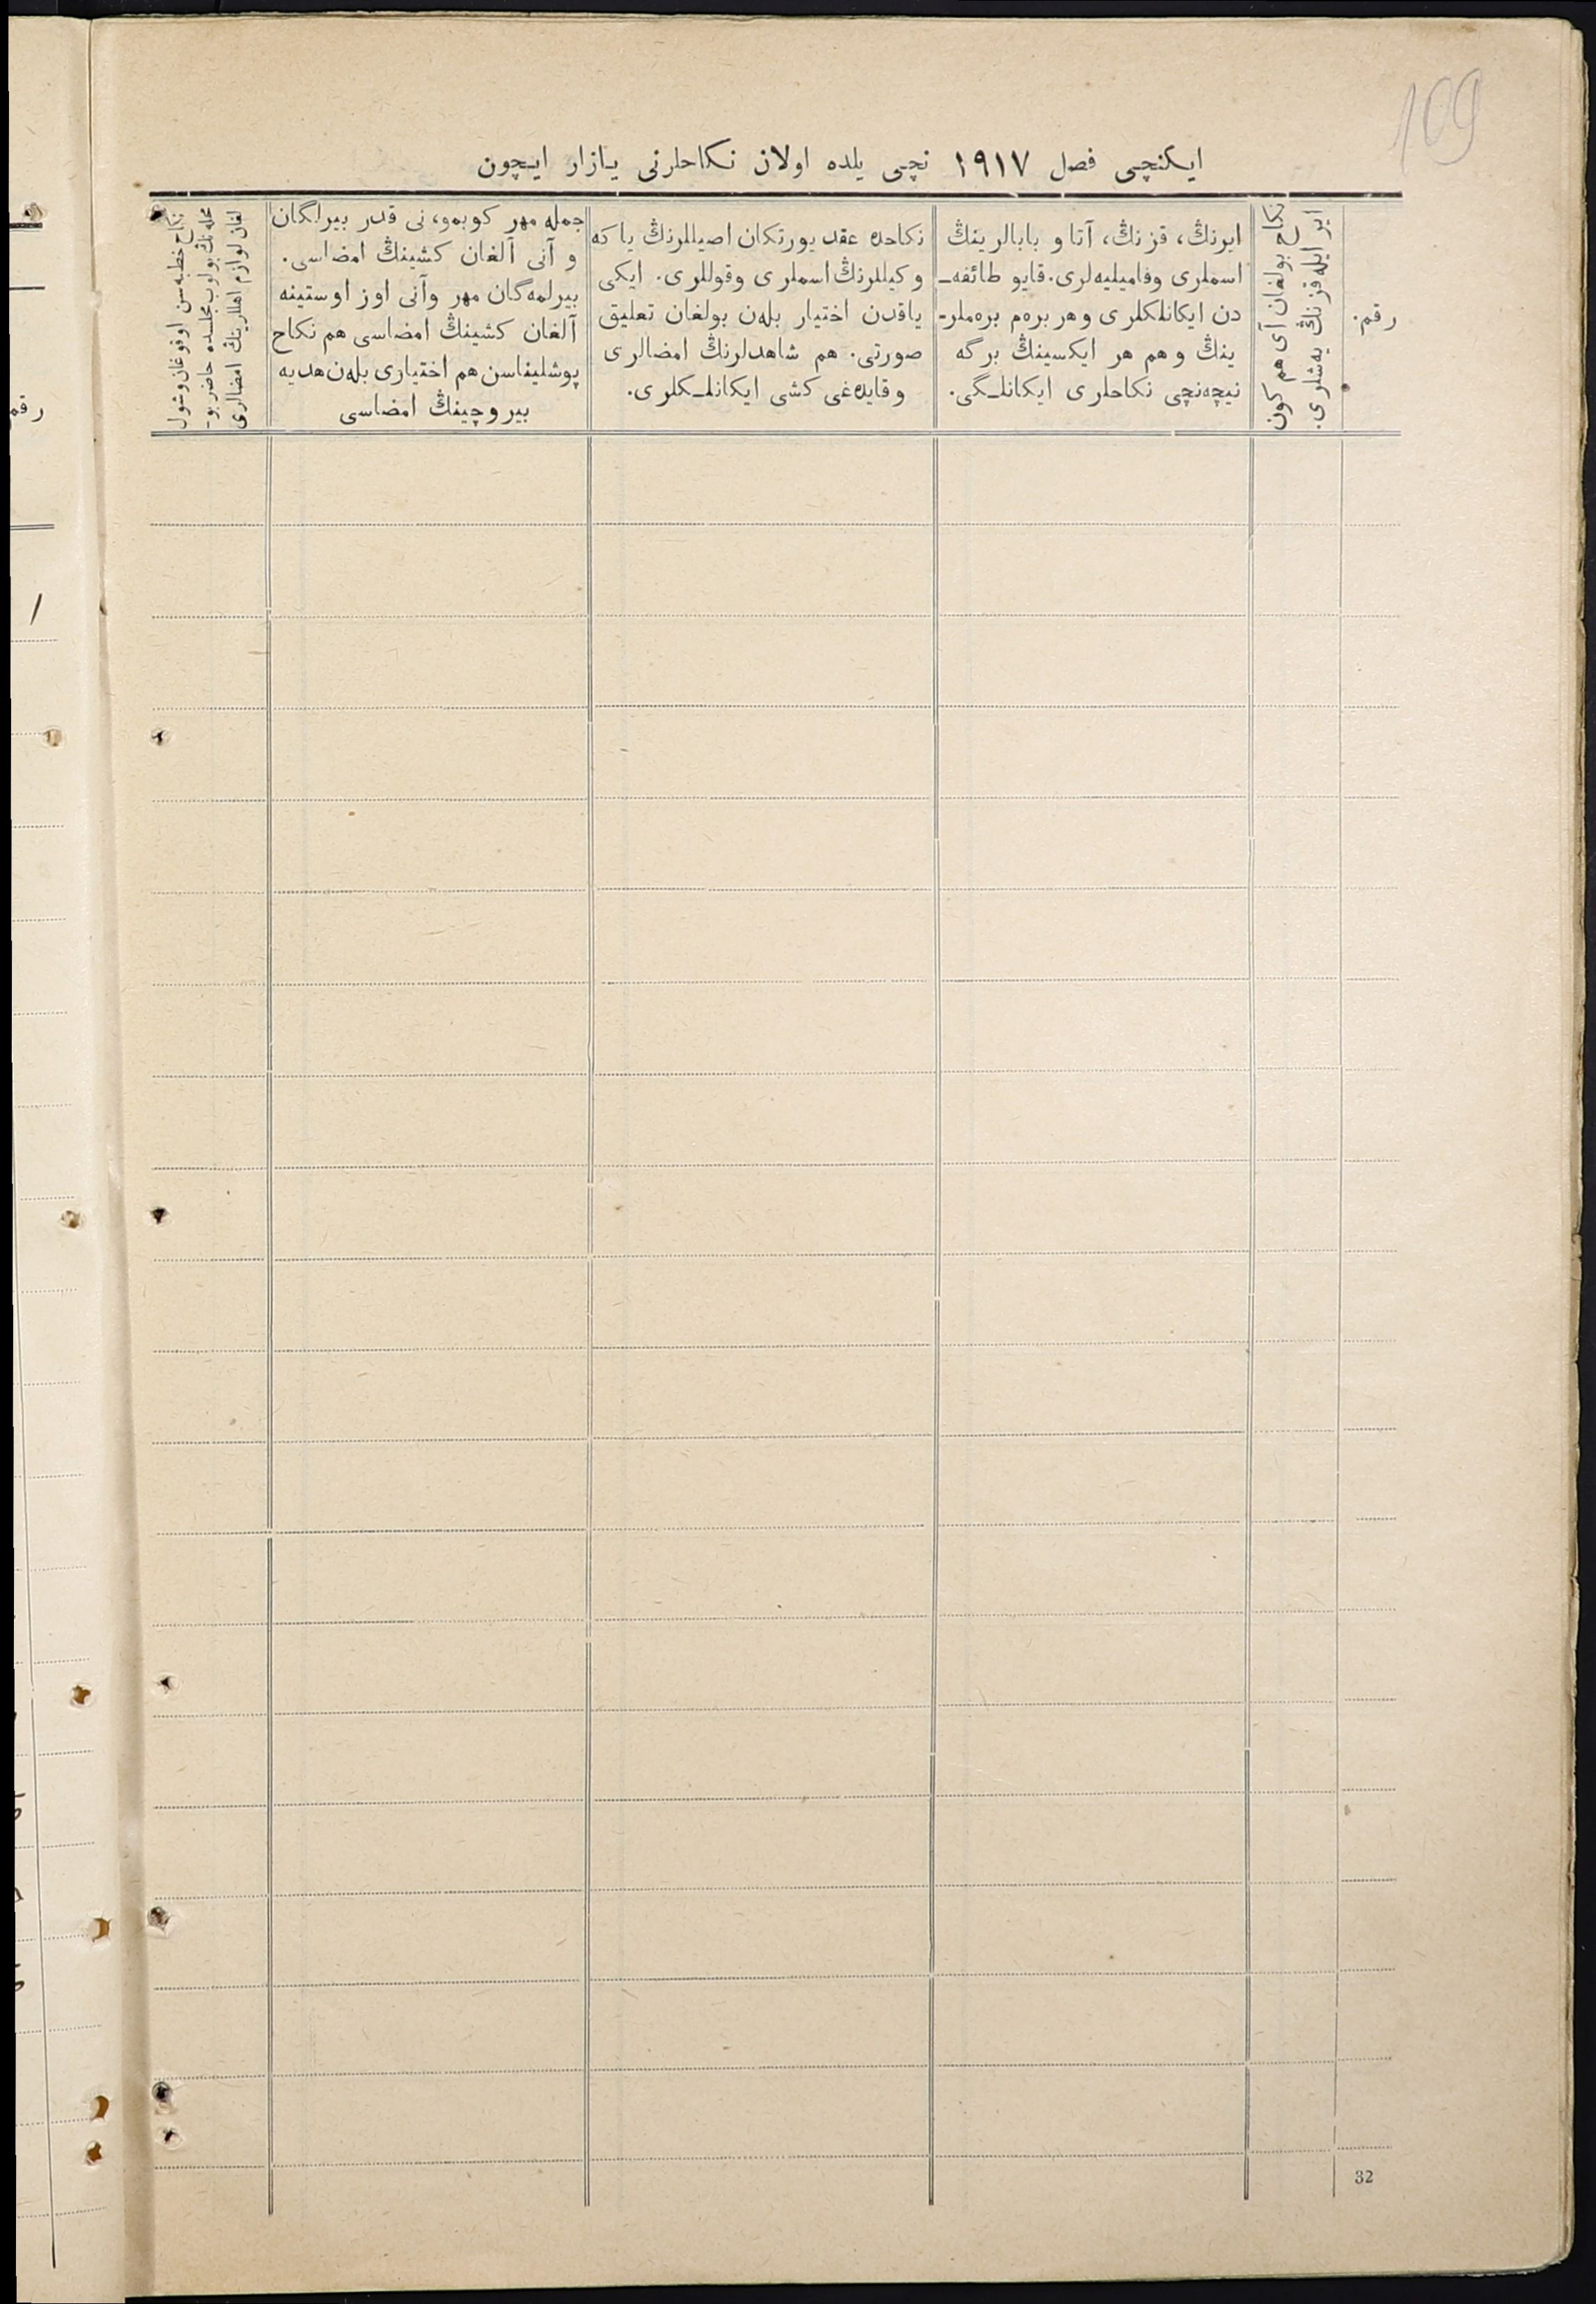 109
ایکنچی فصل ۱۹۱۷ نچی یلده اولان نکاحلرنی یازار ایچون
رقم.
نکاح بولغان آی هم کون
ایر ایله قزنڭ یەشلری.
ایرنڭ، قزنڭ، آتا و بابالرینڭ
اسملری وفامیلیه‌لری. قایو طائفه‌ـ
دن ایکانلکلری وهر بره‌م بره‌ملر-
ینڭ وهم هر ایکسینڭ برگه
نیچه‌نچی نکاحلری ایکانلـگی.
نکاحده عقد یورتکان اصیللرنڭ یا که
وکیللرنڭ اسملری وقوللری. ایکی
یاقدن اختیار بلەن بولغان تعلیق
صورتی. هم شاهدلرنڭ امضالری
وقایده‌غی کشی ایکانلـکلری.
جمله مهر کوبمو، نی قدر بیرلگان
و آنی آلغان کشینڭ امضاسی.
بیرلمه‌گان مهر وآنی اوز اوستینه
آلغان کشینڭ امضاسی هم نکاح
پوشلیناسن هم اختیاری بلەن هدیه
بیروچینڭ امضاسی
نکاح خطبه‌سن اوقوغان وشول
محله‌نڭ بولوب مجلسده حاضر بو-
لغان لوازم اهللرینڭ امضالری
32
رقم
۱